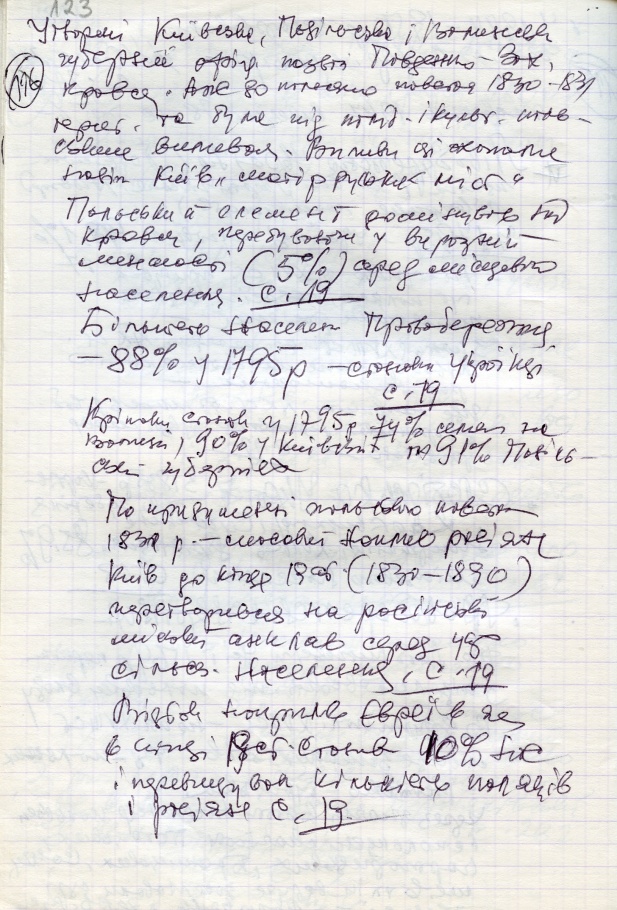 123
Утворені Київська, Подільська і Волинська
губернії дістали назви Південно-Зах.
116
краєм. Аж до польського повстан 1830-1831
терит. та була під політ. і культ. поль-
ським впливом.
навіть Київ „матір руських міст“
Польський елемент домінував над
краєм, перебуваючи у виразній
меншості (5%) серед місцевого
населення. с. 19
Більшість населен Правобережжя
– 88% у 1795 р – становили українці
с. 19
Кріпаки станов у 1795 р 74% селян на
Волині, 90% у Київській та 91% Поділь-
ській губерніях
По придушенні польського повстан
1831 р. – масовий наплив росіян
Київ до кінця 19 ст. (1830–1890)
перетворився на російський
міський анклав серед укр
сільськ. населення, с. 19
Відбув наплив євреїв як
в кінці 18 ст. станов 10% нас
і перевищував кількість поляків
і росіян с. 19